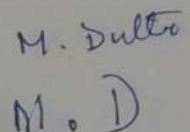 M. Dutto
M. D